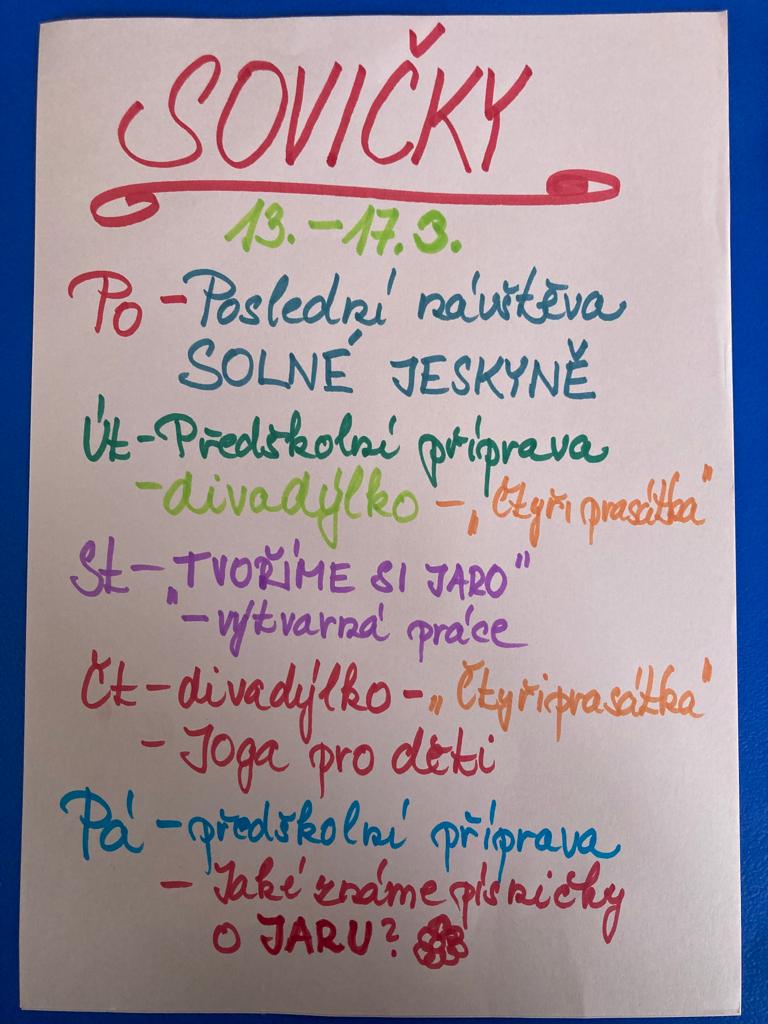 SOVIČKY
13. - 17. 3.
Po - Poslední návštěva
SOLNÉ JESKYNĚ
Út - Předškolní příprava
- divadýlko - „Čtyři prasátka"
St - „TVOŘÍME SI JARO"
- výtvarná práce
Čt - divadýlko - „Čtyři prasátka"
- Joga pro děti
Pá - předškolní příprava
- Jaké známe písničky
O JARU?